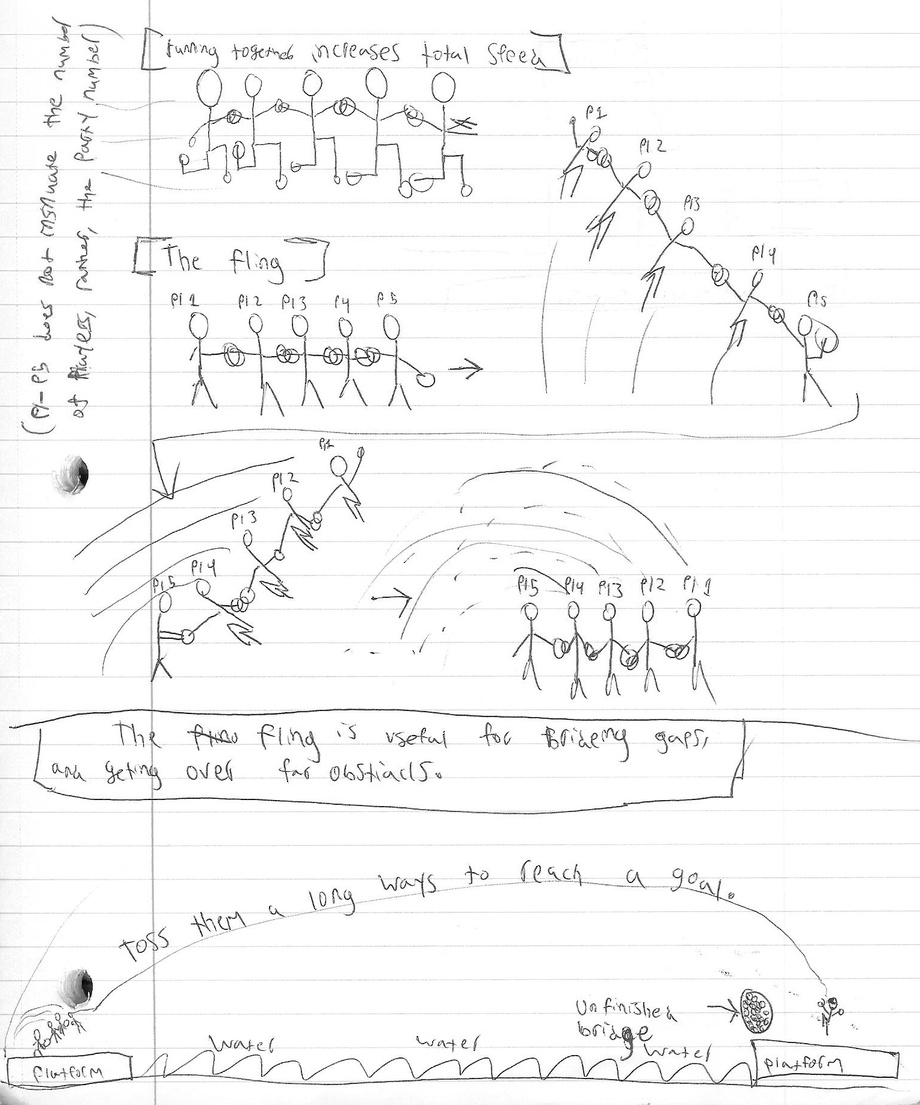 (P1-P5 does not insinuate the number
of players, rather, the party number)
running together increases total speed
P1
P12
P13
P14
P5
The fling
P11 P12 P13 P4 P5
P1
P12
P13
P14
P15
P15 P14 P13 P12 P11
The fling is useful for Brideing gaps,
and geting over far obsticls.
toss them a long ways to reach a goal.
Unfinished
bridge
water water water
Platform Platform